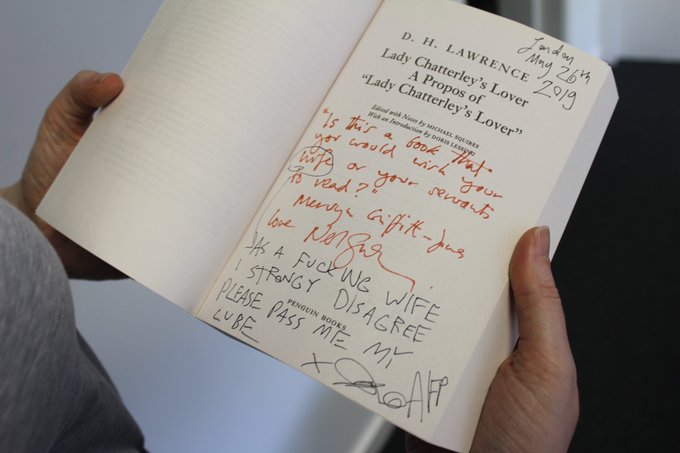 London
May 26th
2019
D. H. LAWRENCE
Lady Chatterley's Lover
A Propos of
"Lady Chatterley's Lover"
Edited with Notes by MICHAEL SQUIRES
With an Introduction by DORIS LESSING
"Is this a book that
you would wish your
wife or your servants
to read?"
Mervyn Griffith-Jones
love
AS A FUCKING WIFE
I STRONGY DISAGREE
PENGUIN BOOKS
PLEASE PASS ME MY
LUBE
x AFP